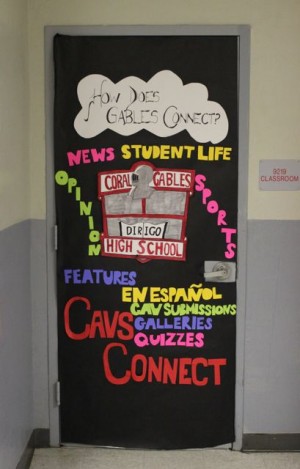 How Does
Gables Connect?
NEWS STUDENT LIFE
OPINION
CORAL GABLES
SPORTS
DIRIGO
HIGH SCHOOL
FEATURES
EN ESPAÑOL
CAV SUBMISSIONS
GALLERIES
QUIZZES
CAVS
CONNECT
CLASSROOM